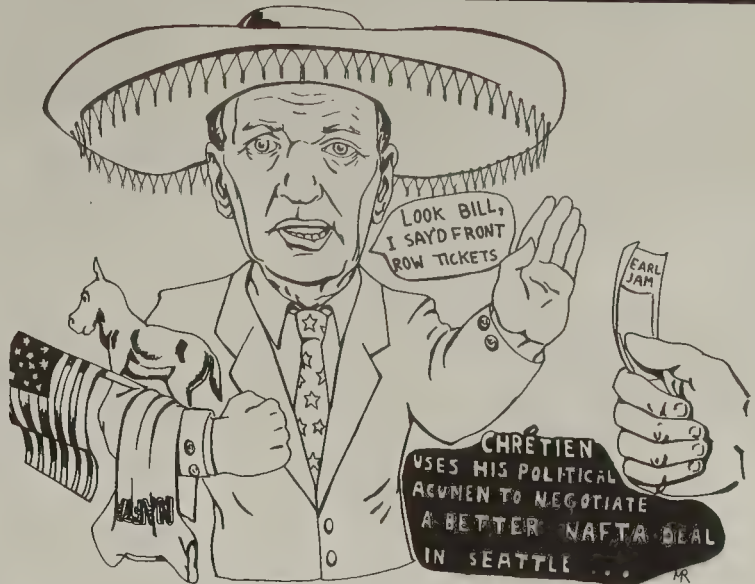 LOOK BILL,
I SAY'D FRONT
ROW TICKETS
EARL
JAM
CHRÉTIEN
USES HIS POLITICAL
ACUMEN TO NEGOTIATE
A BETTER NAFTA DEAL
IN SEATTLE ...
MR